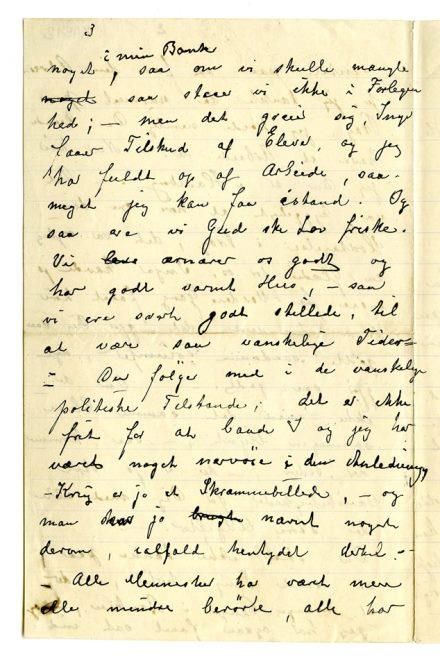 3
i min Bank
noget, saa om vi skulle mangle
noget saa staae vi ikke i Forlegen
hed; – men det greier sig, Inge
faaer Tilskud af Elever, og jeg
har fuldt op af Arbeide, saa-
meget jeg kan faa istand. Og
saa ere vi Gud ske Lov friske.
Vi leve ernærer os godt og
har godt varmt Huus, – saa
vi ere særk godt stillede, til
at være saa vanskelige Tider –
– Du følger med i de vanskelige
politiske Tilstande; det er ikke
frit for at baade I og jeg har
været noget nervøse i den Anledning,
– Krig er jo et Skræmmebillede, – og
man har jo brugt nævnt noget
derom, ialfald hentydet dertil. –
– Alle Mennesker har været mere
elle mindre berørte, alle har